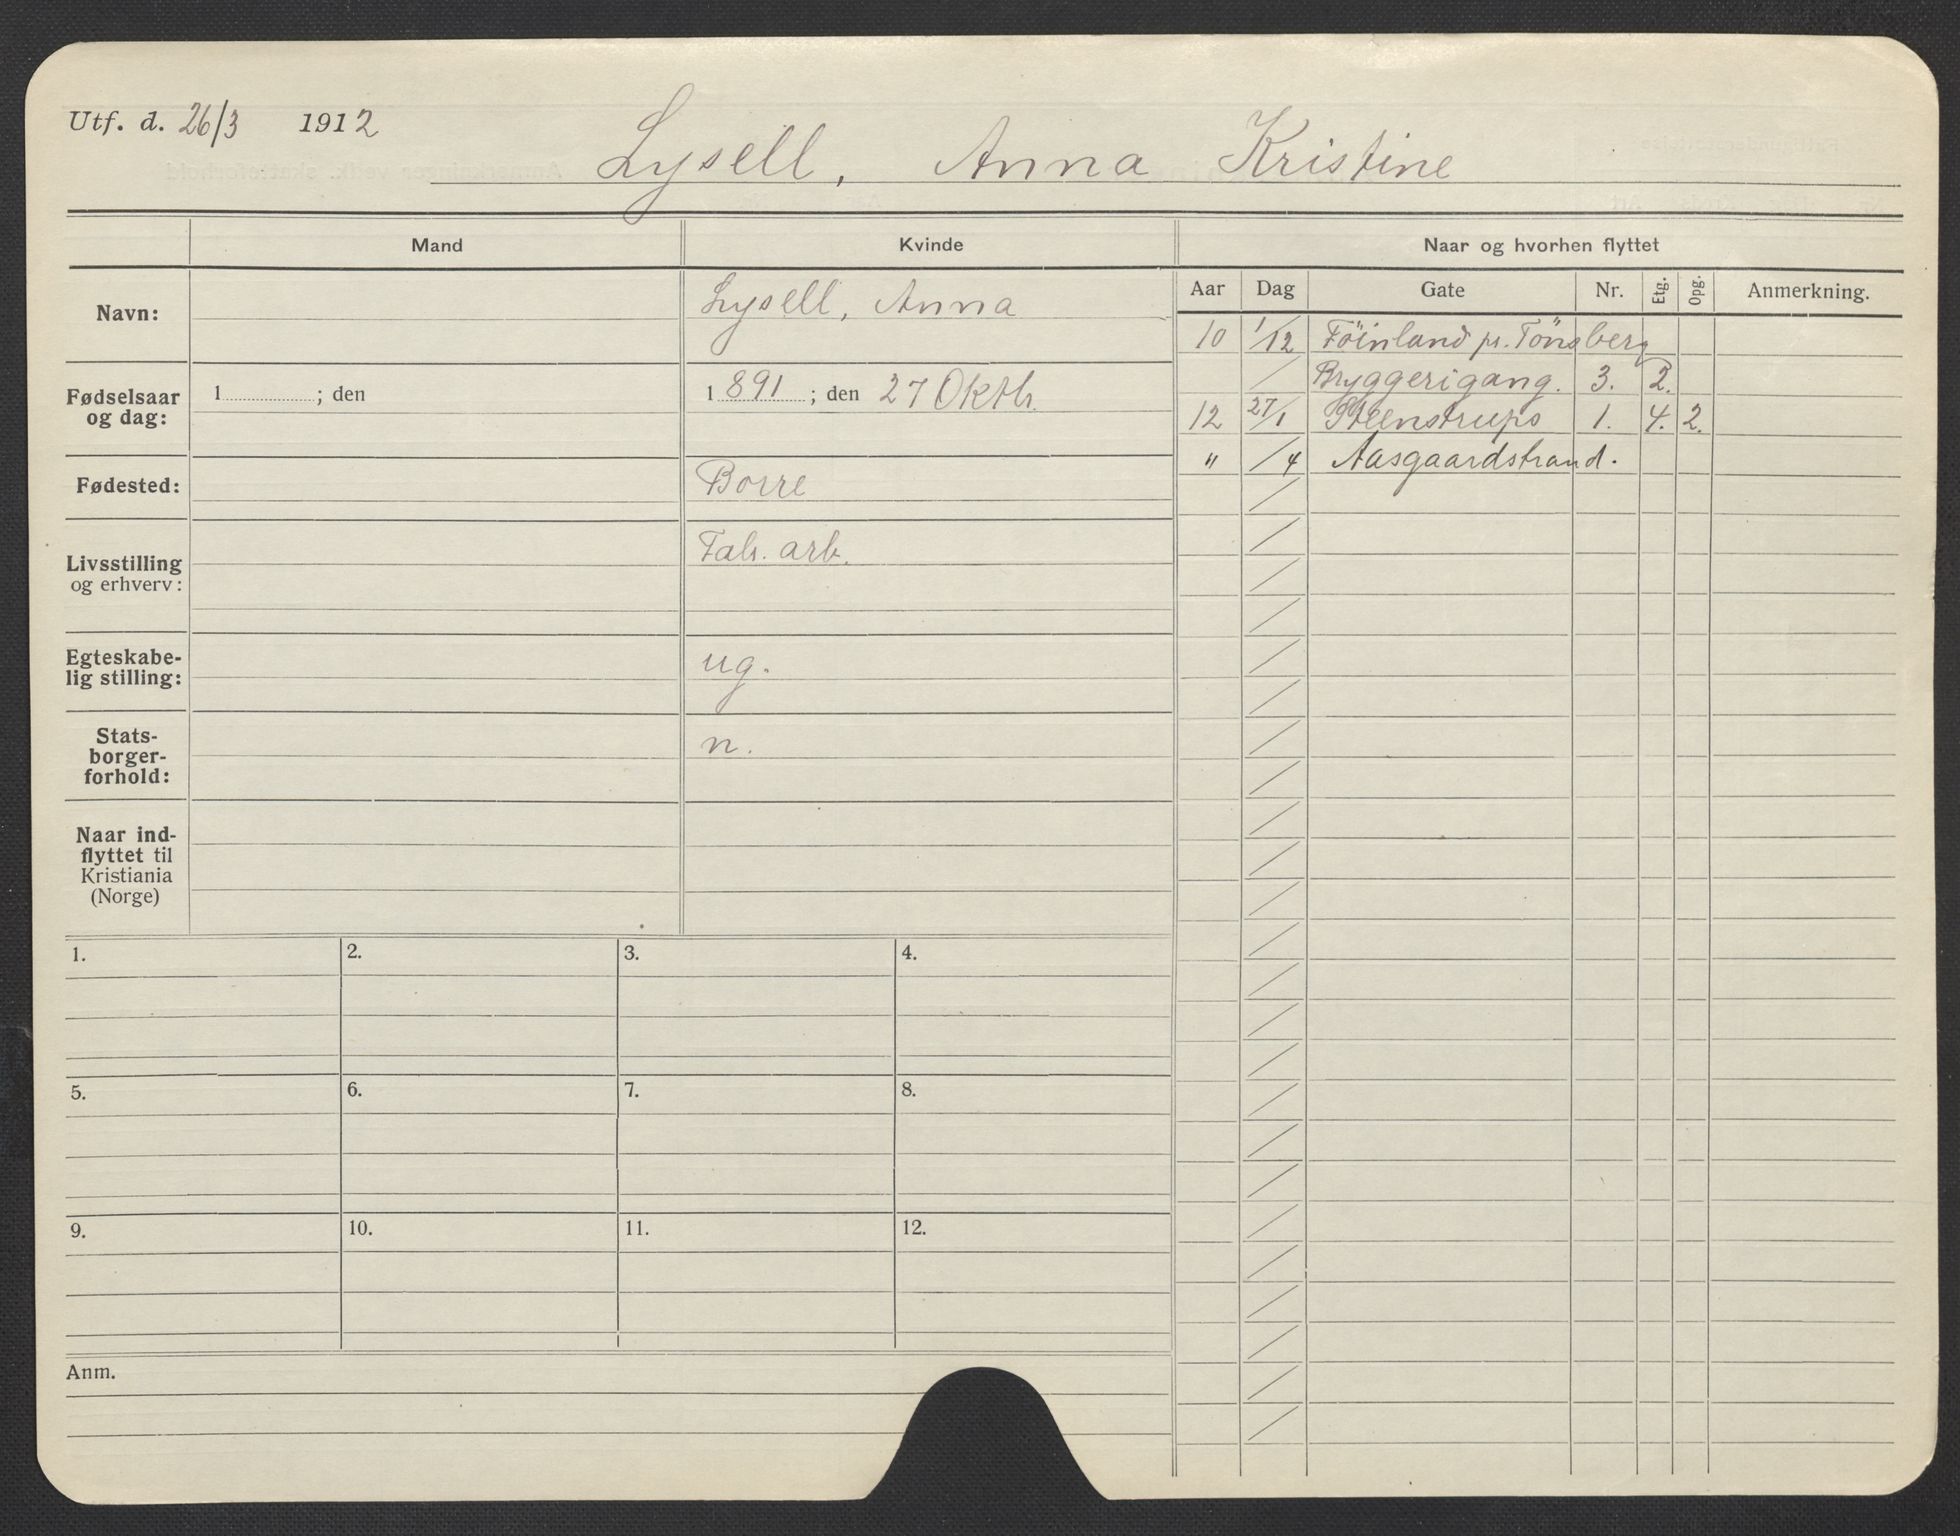 Utf. d. 26/3 1912
Lysell, Anna Kristine
Mand Kvinde Naar og hvorhen flyttet
Navn: Lysell, Anna
Fødselsaar og dag: 1 ; den 1891 ; den 27 Oktbr.
Fødested: Borre
Livsstilling og erhverv: Fabr. arb.
Egteskabe-
lig stilling: ug.
Stats-
borger-
forhold: n.
Naar ind-
flyttet til
Kristiania
(Norge)
Aar Dag Gate Nr. Etg. Opg. Anmerkning.
10 1/12 Föinland pr. Tönsberg
/ Bryggerigang. 3. 2.
12 27/1 Steenstrups 1. 4. 2.
" /4 Aasgaardstrand.
1. 2. 3. 4.
5. 6. 7. 8.
9. 10. 11. 12.
Anm.